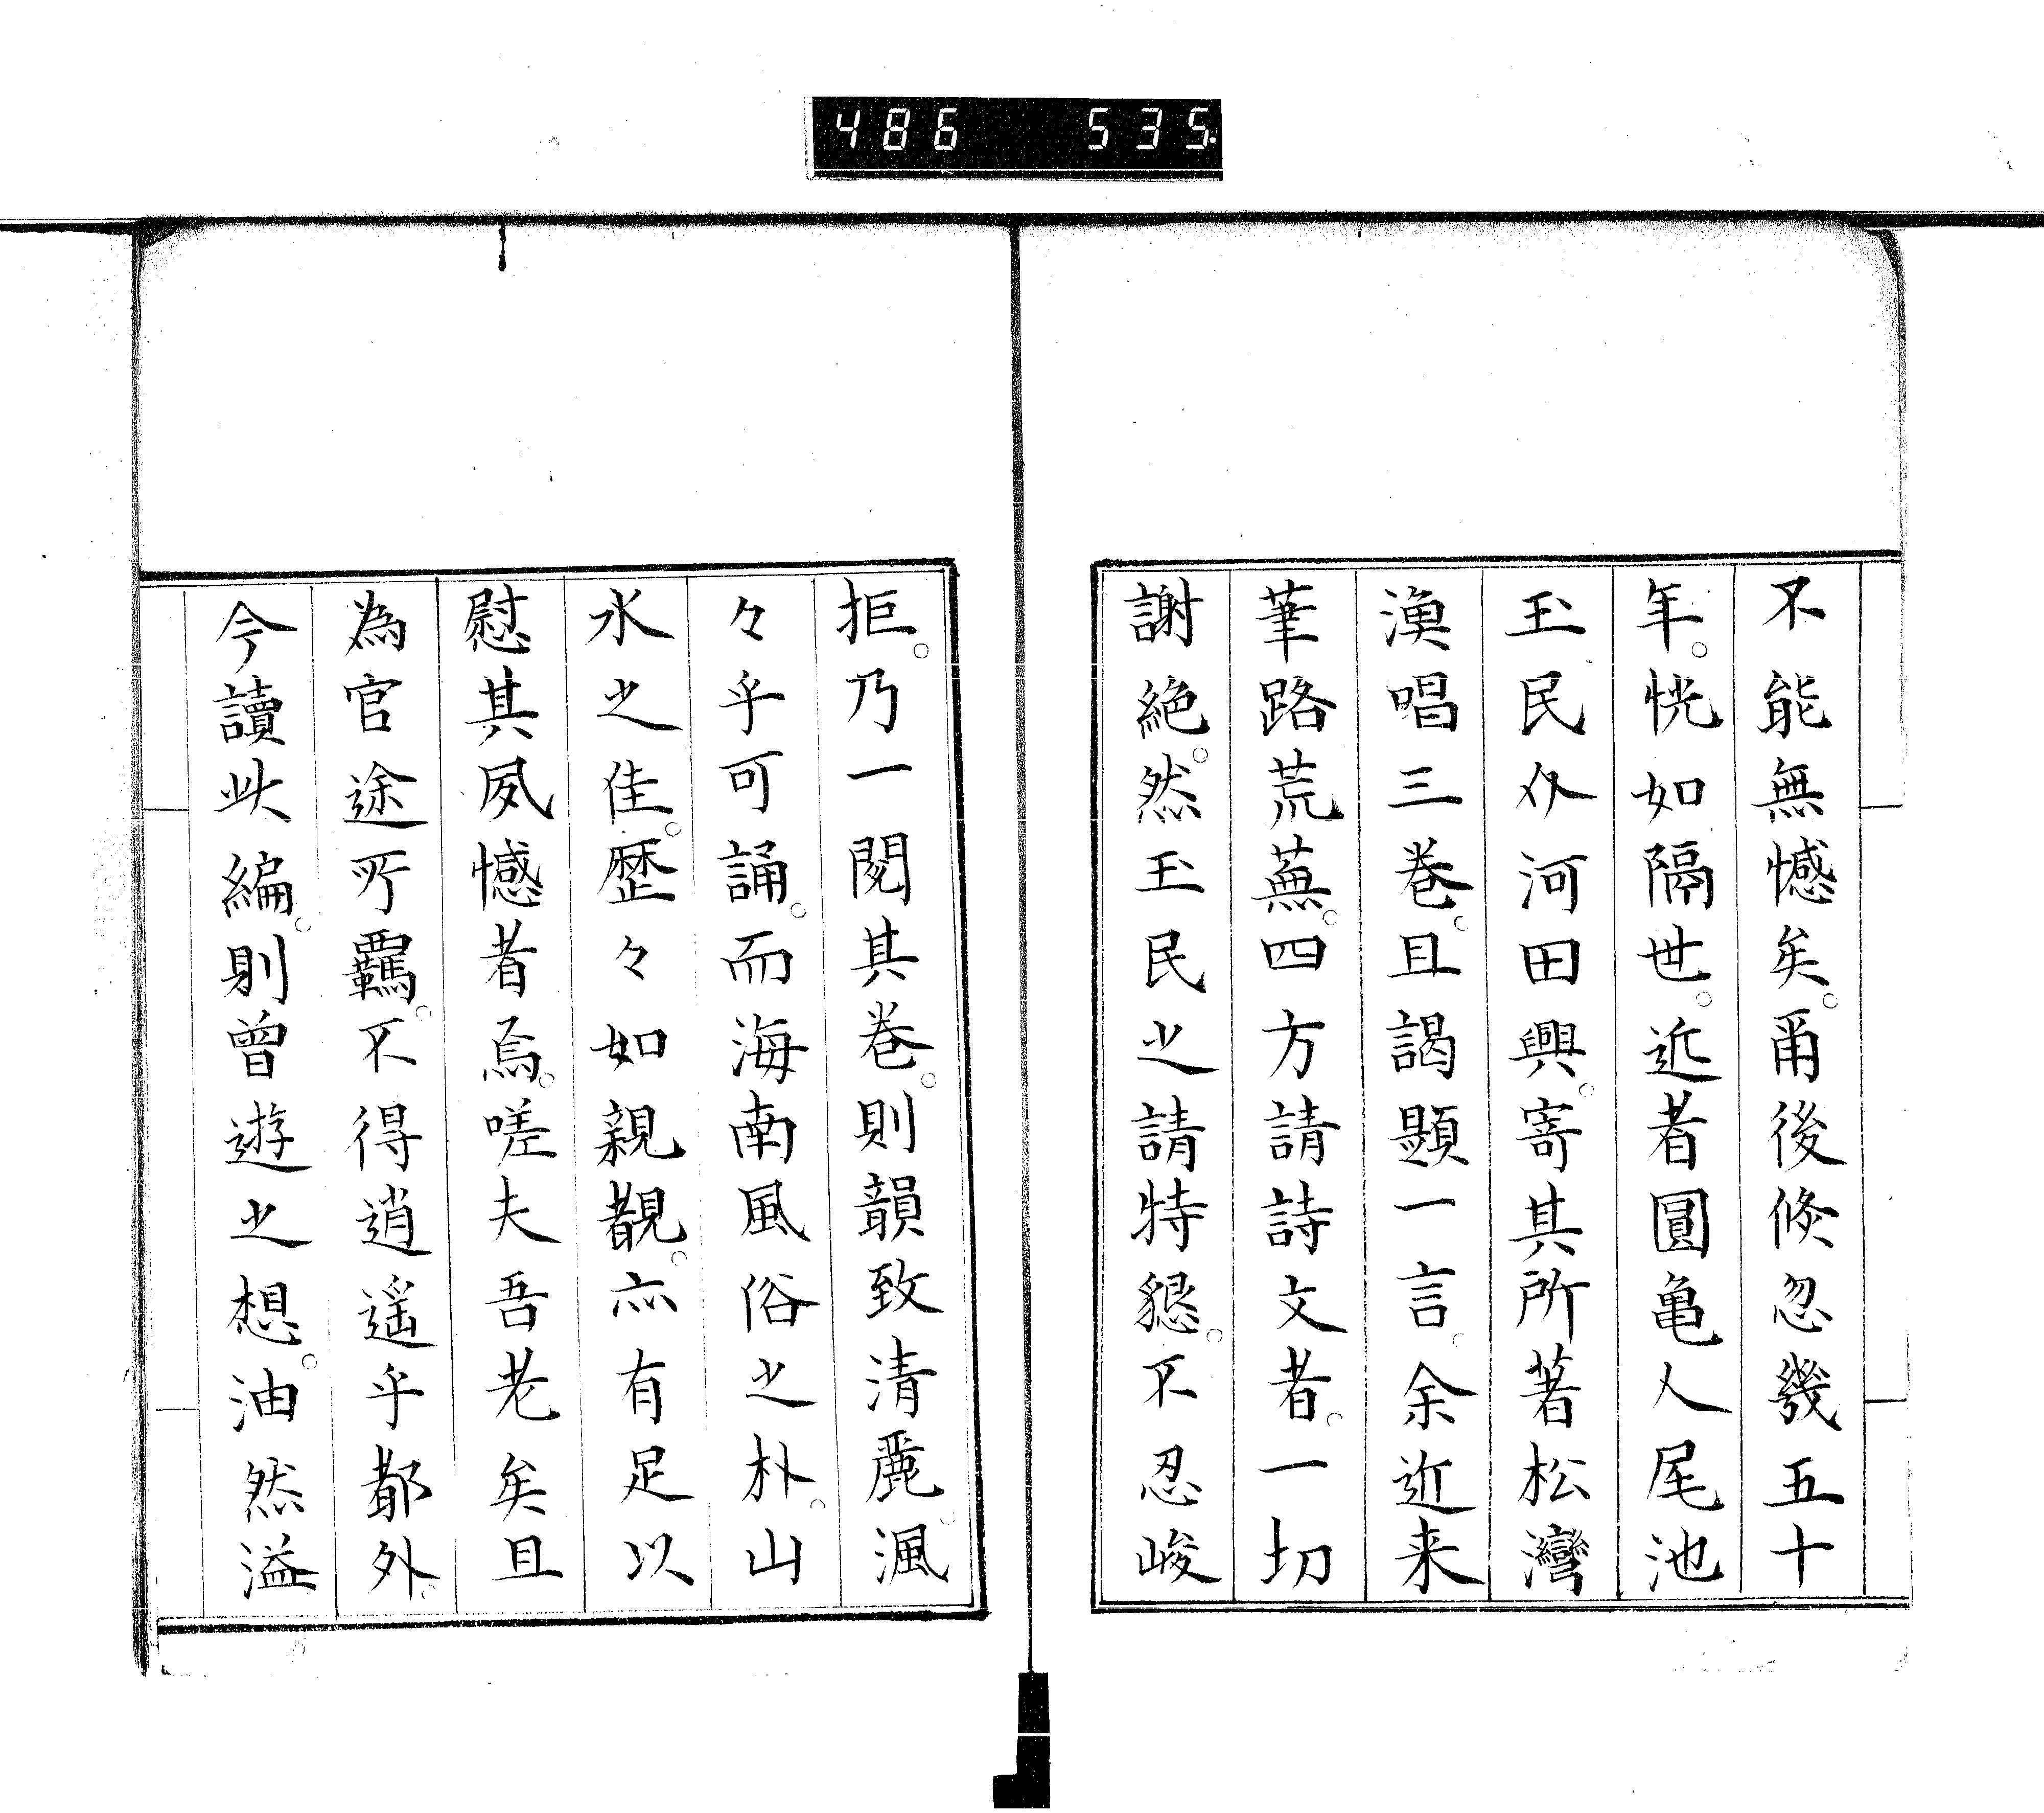 486 535.
不能無憾矣。爾後倐忽幾五十
年。恍如隔世。近者圓亀人尾池
玉民介河田興。寄其所著松灣
漁唱三巻。且謁題一言。余近来
筆路荒蕪。四方請詩文者。一切
謝絶。然玉民之請特懇。不忍峻
拒。乃一閲其巻。則韻致清麗。渢
々乎可誦。而海南風俗之朴。山
水之佳。歴々如親覩。亦有足以
慰其夙憾者焉。嗟夫吾老矣且
為官途所羈。不得逍遥乎都外。
今讀此編。則曾遊之想。油然溢